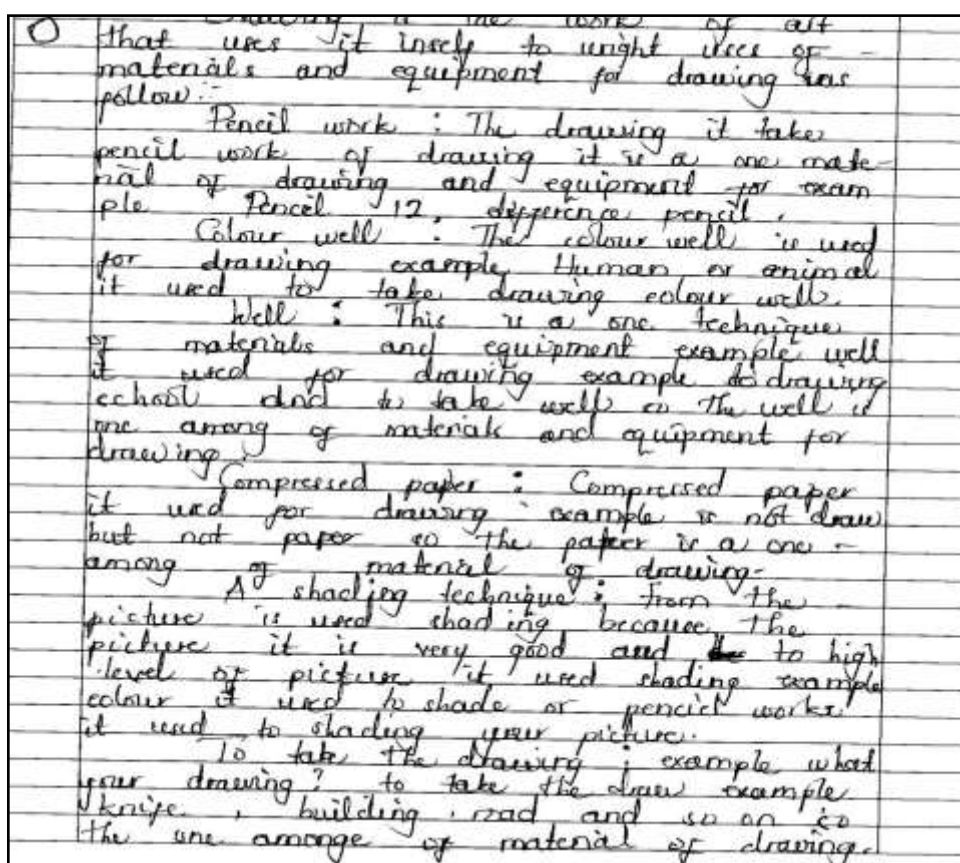 Drawing is the work of art
that uses it inself to unight uses of
materials and equipment for drawing was
follow:-
Pencil work : The drawing it take
pencil work of drawing it is a one mate-
rial of drawing and equipment for exam
ple Pencil 12, difference pencil.
Colour well : The colour well is used
for drawing example Human or animal
it used to take drawing colour well.
Well : This is a one technique
of materials and equipment example well
it used for drawing example to drawing
school and to take well so The well is
one among of materials and equipment for
drawing.
Compressed paper : Compressed paper
it used for drawing example is not draw
but not paper so the paper is a one -
among of material of drawing-
A shading technique : from the
picture is used shading because the
picture it is very good and to high
level of picture it used shading example
colour it used to shade or pencil works
it used to shading your picture.
To take the drawing ; example what
your drawing? to take the draw example
knife, building, road and so on is
the one amonge of material of drawing.